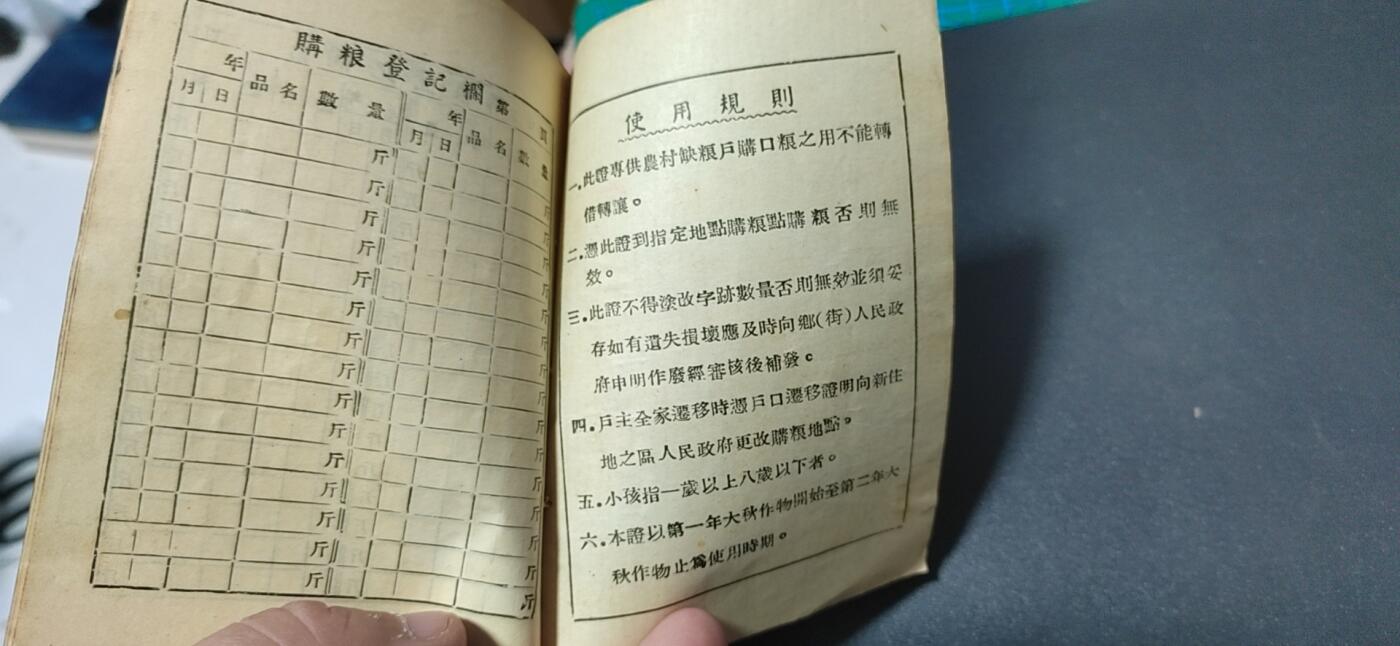 購粮登記欄第 頁
年 年
月 日 品名 數量 月 日 品名 數量
斤 斤
斤 斤
斤 斤
斤 斤
斤 斤
斤 斤
斤 斤
斤 斤
斤 斤
斤 斤
斤 斤
斤 斤
斤 斤
斤 斤
斤 斤
使用規則
一.此證專供農村缺粮戶購口粮之用不能轉
借轉讓。
二.憑此證到指定地點購粮點購粮否則無
效。
三.此證不得塗改字跡數量否則無效並須妥
存如有遺失損壞應及時向鄉(街)人民政
府申明作廢經審核後補發。
四.戶主全家遷移時憑戶口遷移證明向新住
地之區人民政府更改購粮地點。
五.小孩指一歲以上八歲以下者。
六.本證以第一年大秋作物開始至第二年大
秋作物止為使用時期。